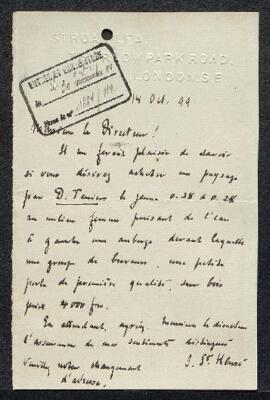 STRUAN LEA
THURLOW PARK ROAD,
LONDON.S.E.
14 Oct. 99
Monsieur le Directeur!
Il me ferait plaisir de savoir
si vous désirez acheter un paysage
par D. Teniers le jeune 0.38 à 0.28
au milieu femme puisant de l'eau
à gauche une auberge devant laquelle
une groupe de buveurs, une petite
perle de première qualité, sur bois
prix 4000 frs.
En attendant, agréez, Monsieur le directeur
l'assurance de mes sentiments distingués
Veuillez noter changement
d'adresse.